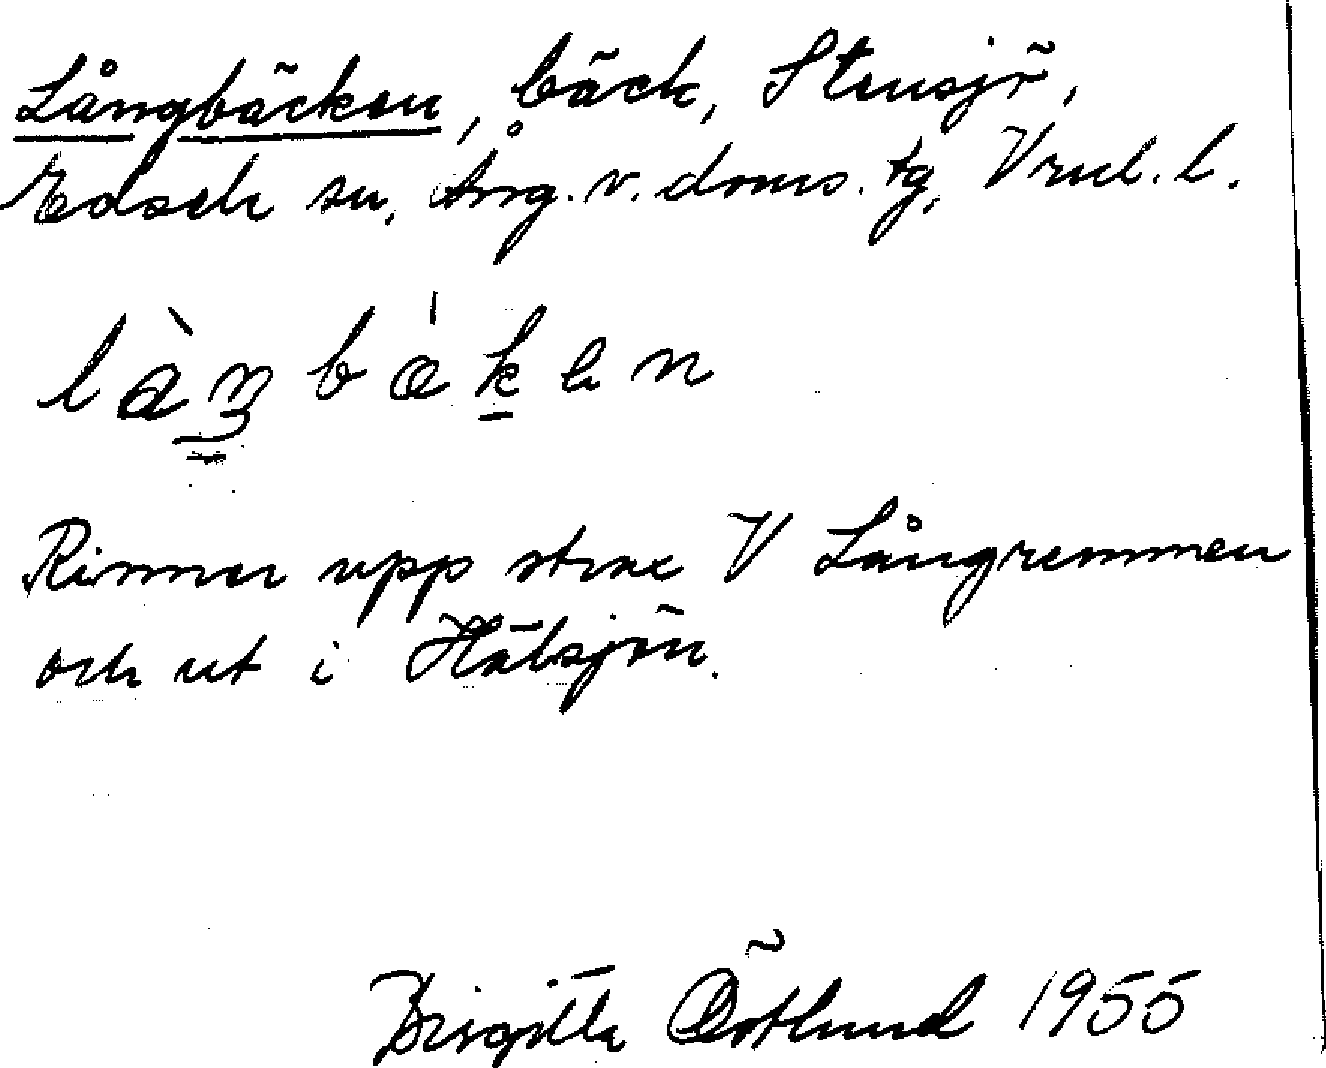 Långbäcken, bäck, Stensjö,
Edsele sn, Ång. v. doms. tg, Vrnl. l.
làŋbák̲en
Rinner upp strax V Långremmen
och ut i Hälsjön.
Birgitta Östlund 1955